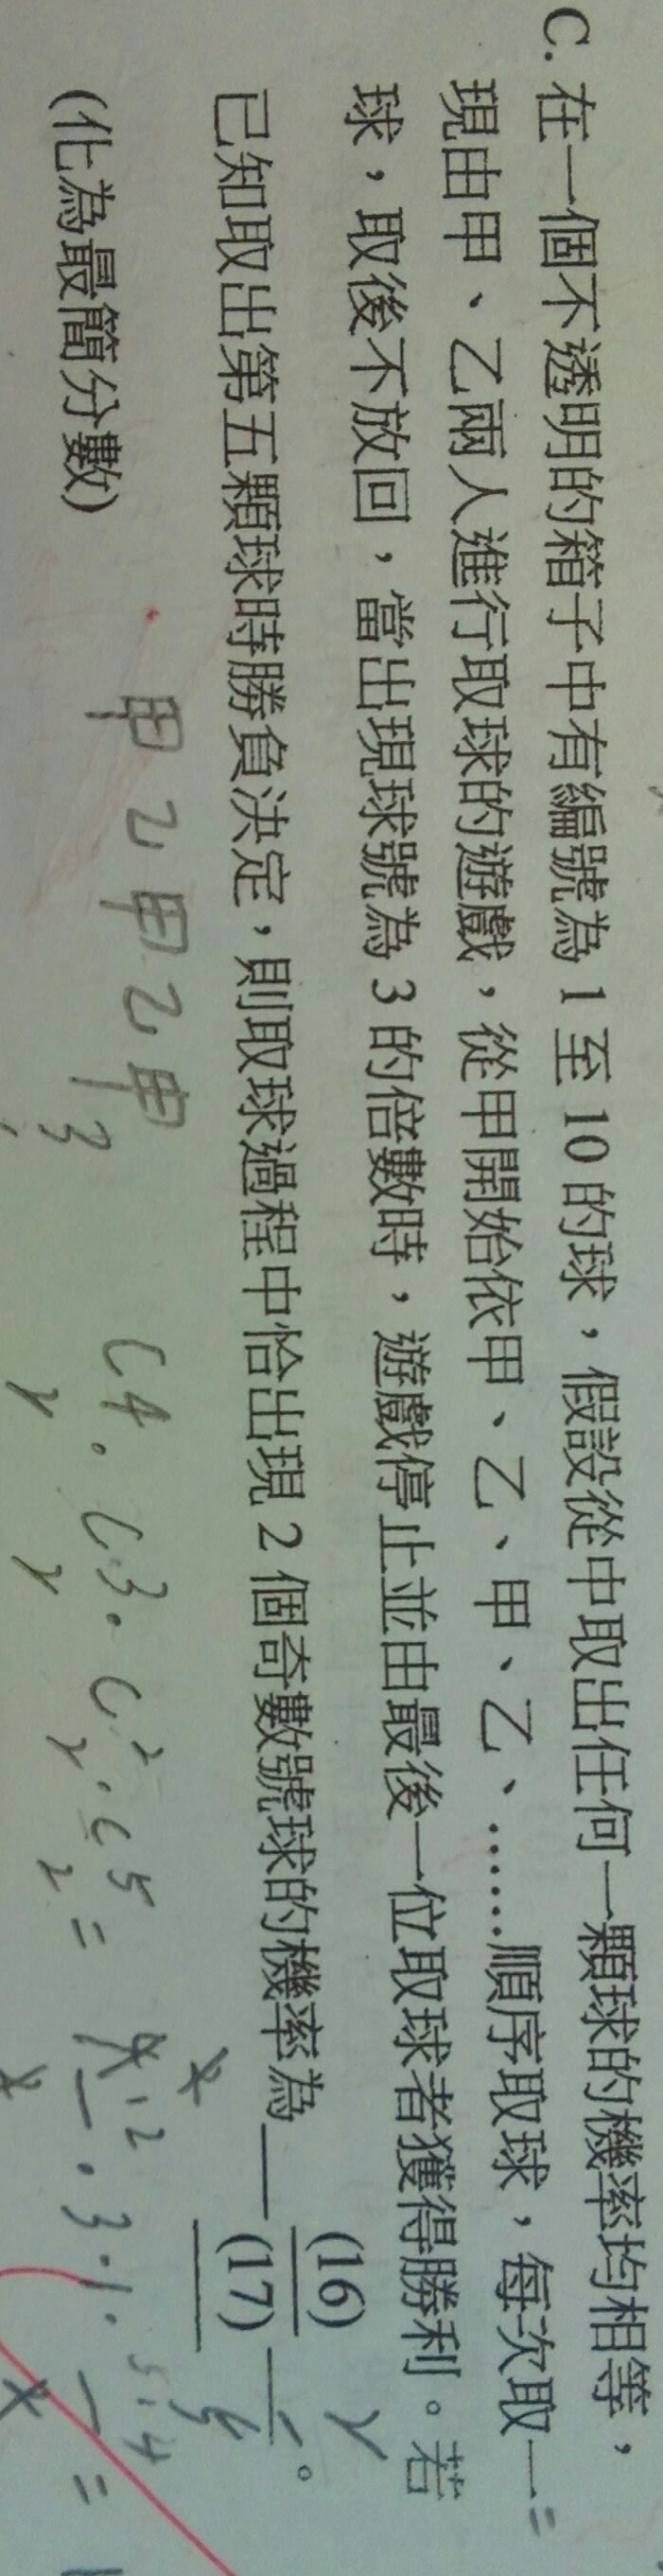 C. 在一個不透明的箱子中有編號為 1 至 10 的球，假設從中取出任何一顆球的機率均相等，
現由甲、乙兩人進行取球的遊戲，從甲開始依甲、乙、甲、乙、……順序取球，每次取一
球，取後不放回，當出現球號為 3 的倍數時，遊戲停止並由最後一位取球者獲得勝利。若
已知取出第五顆球時勝負決定，則取球過程中恰出現 2 個奇數號球的機率為 (16)
(17) 。
(化為最簡分數)
甲乙甲乙甲
3